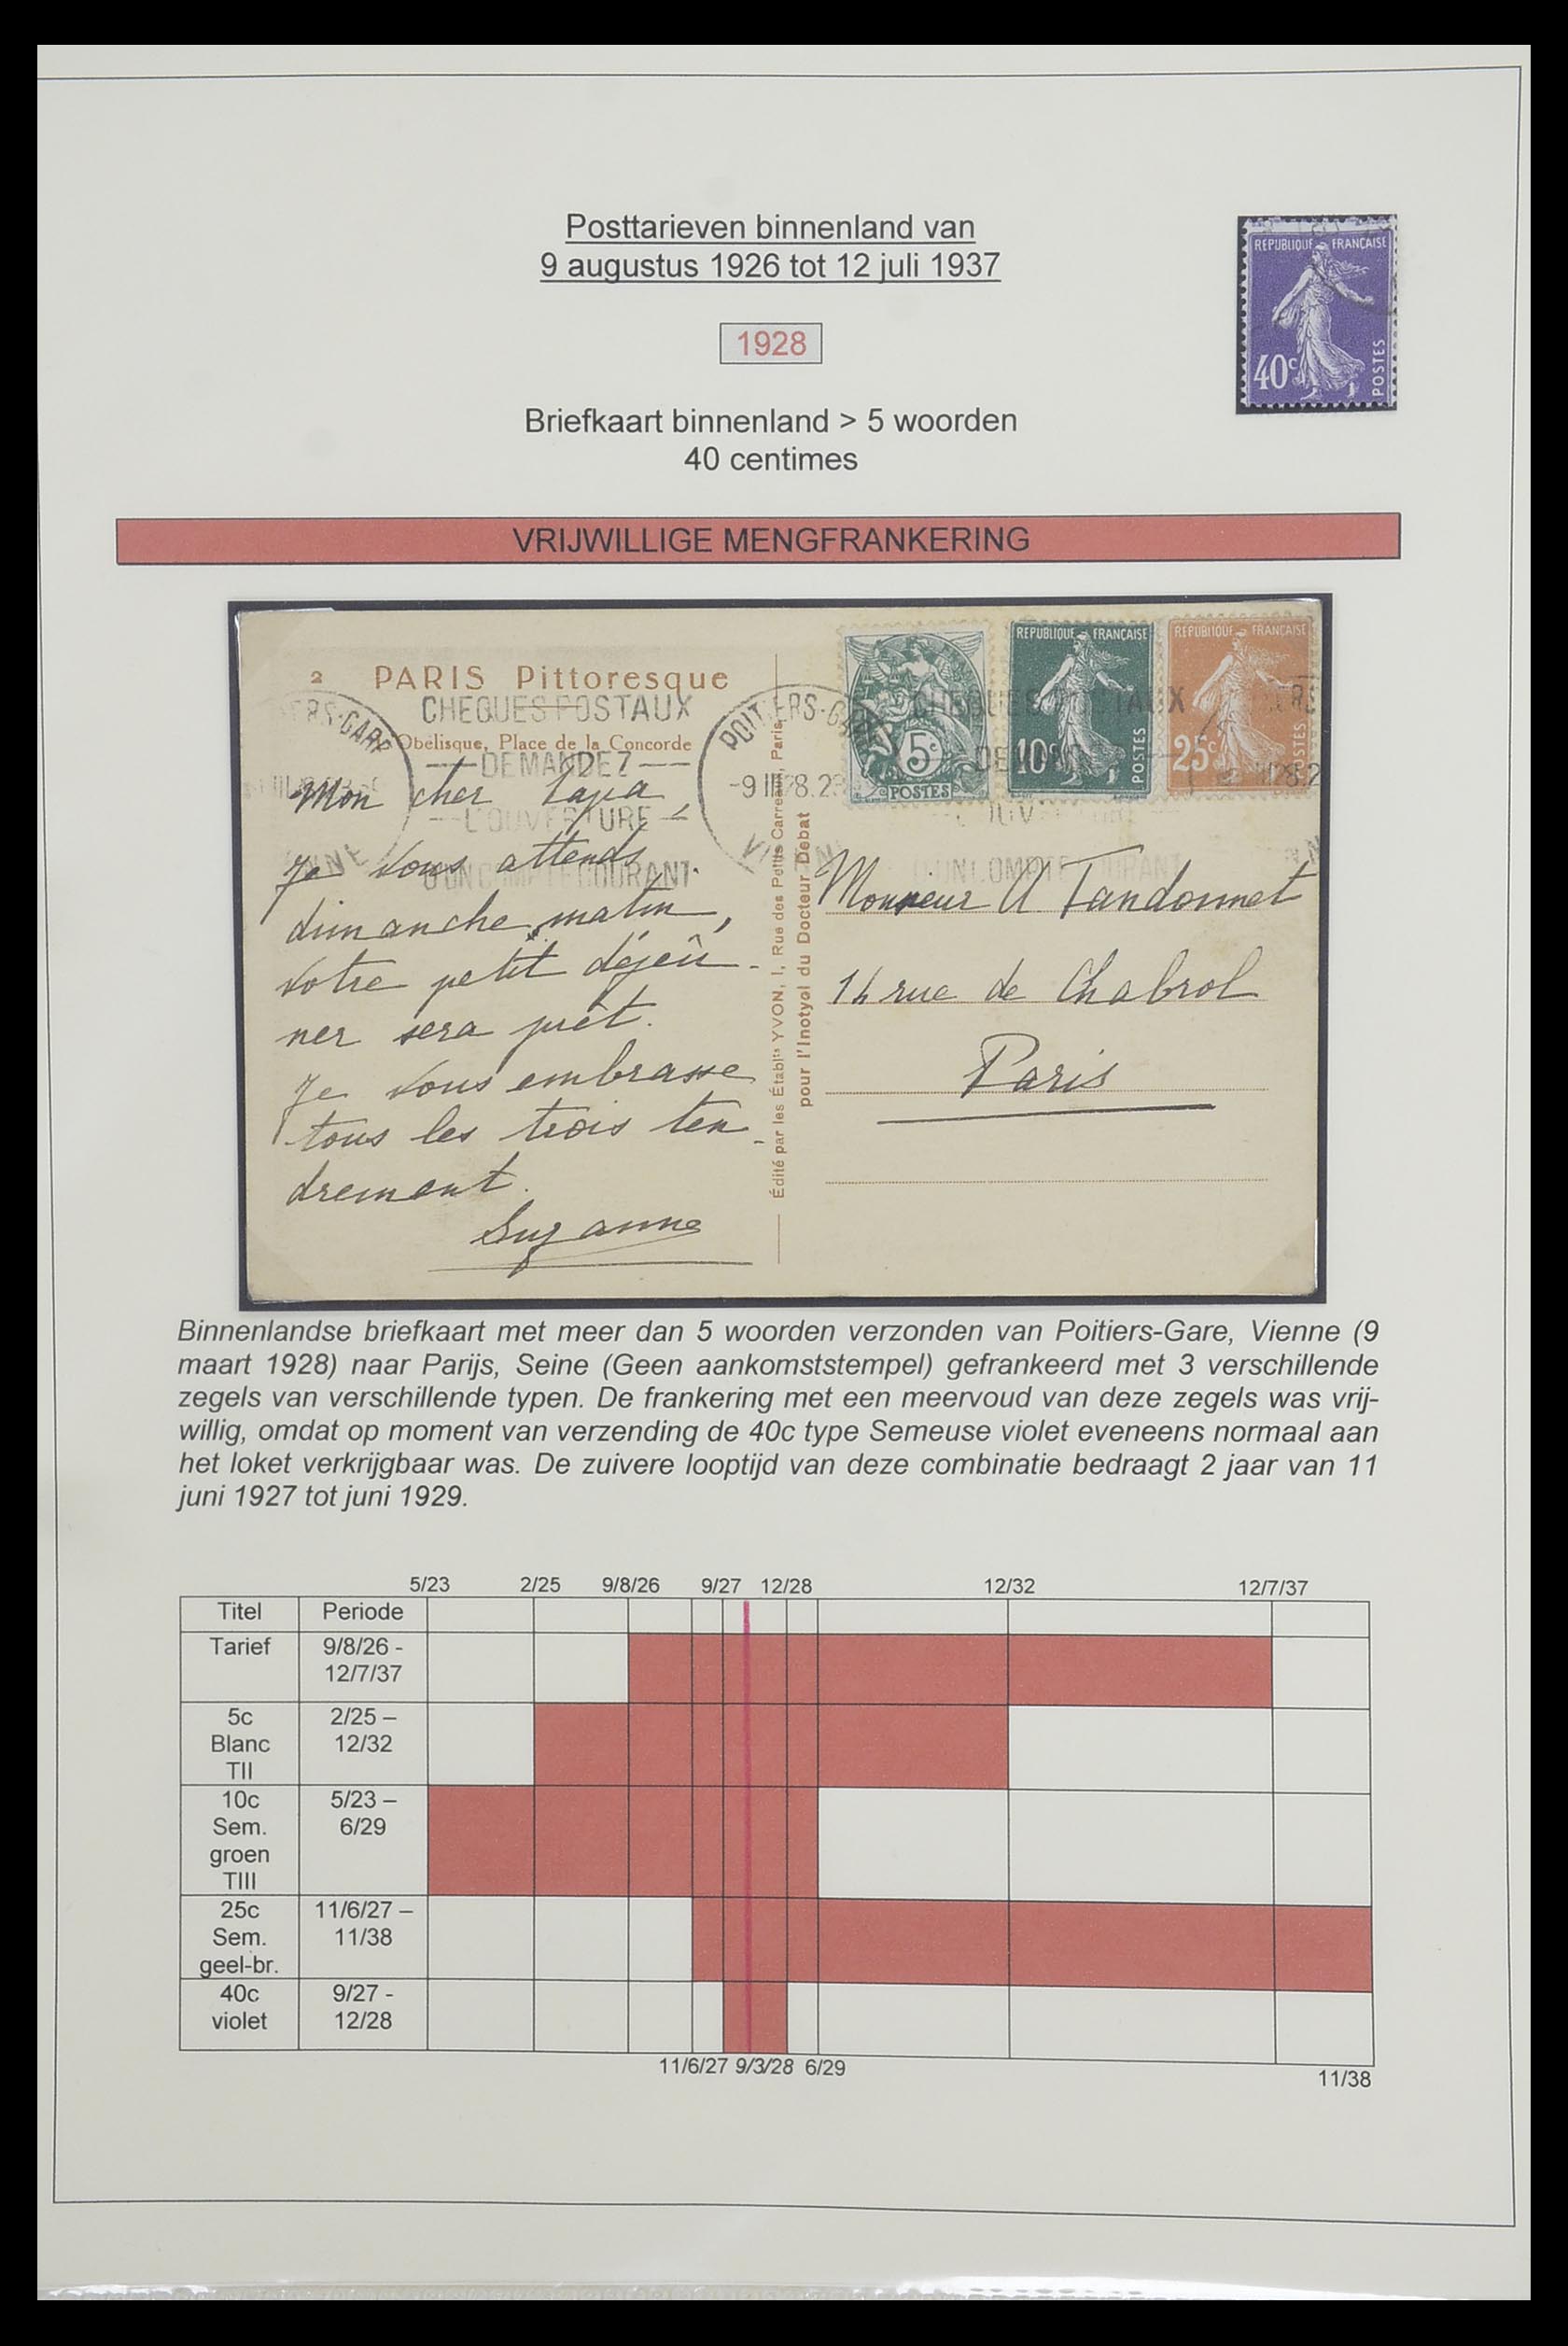 Posttarieven binnenland van
9 augustus 1926 tot 12 juli 1937
REPUBLIQUE FRANÇAISE
40c
POSTES
1928
Briefkaart binnenland > 5 woorden
40 centimes
VRIJWILLIGE MENGFRANKERING
2 PARIS Pittoresque
Obélisque, Place de la Concorde
CHEQUES POSTAUX
DEMANDEZ
L'OUVERTURE
D'UN COMPTE COURANT
POITIERS-GARE
-9 III 28.
5c
POSTES
REPUBLIQUE FRANÇAISE
10c
POSTES
REPUBLIQUE FRANÇAISE
25c
POSTES
Mon cher Papa,
Je vous attends
dimanche matin,
votre petit déjeû-
ner sera prêt.
Je vous embrasse
tous les trois ten-
drement.
Suzanne
Édité par les Établts YVON, 1, Rue des Petits Carreaux, Paris
pour l'Inotyol du Docteur Debat
Monsieur A Tandonnet
14 rue de Chabrol
Paris
Binnenlandse briefkaart met meer dan 5 woorden verzonden van Poitiers-Gare, Vienne (9
maart 1928) naar Parijs, Seine (Geen aankomststempel) gefrankeerd met 3 verschillende
zegels van verschillende typen. De frankering met een meervoud van deze zegels was vrij-
willig, omdat op moment van verzending de 40c type Semeuse violet eveneens normaal aan
het loket verkrijgbaar was. De zuivere looptijd van deze combinatie bedraagt 2 jaar van 11
juni 1927 tot juni 1929.
5/23 2/25 9/8/26 9/27 12/28 12/32 12/7/37
Titel Periode
Tarief 9/8/26 -
12/7/37
5c 2/25 –
Blanc 12/32
TII
10c 5/23 –
Sem. 6/29
groen
TIII
25c 11/6/27 –
Sem. 11/38
geel-br.
40c 9/27 -
violet 12/28
11/6/27 9/3/28 6/29 11/38